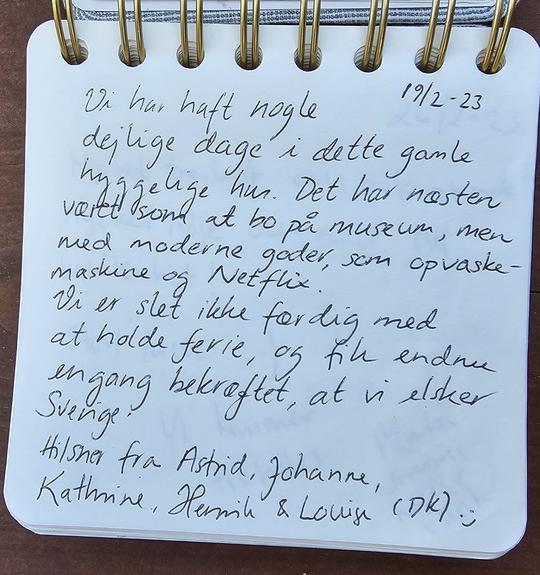 19/2-23
Vi har haft nogle
dejlige dage i dette gamle
hyggelige hus. Det har næsten
været som at bo på museum, men
med moderne goder, som opvaske-
maskine og Netflix.
Vi er slet ikke færdig med
at holde ferie, og fik endnu
engang bekræftet, at vi elsker
Sverige.
Hilsner fra Astrid, Johanne,
Kathrine, Henrik & Louise (DK) :)